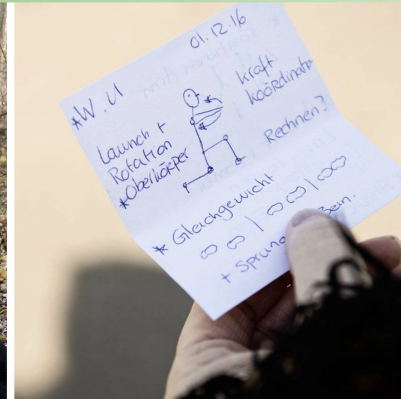 01.12.16
*W. U
Launch +
Rotation
*Oberkörper
Kraft
Koordinate
Rechnen?
* Gleichgewicht
+ Sprung Bein.